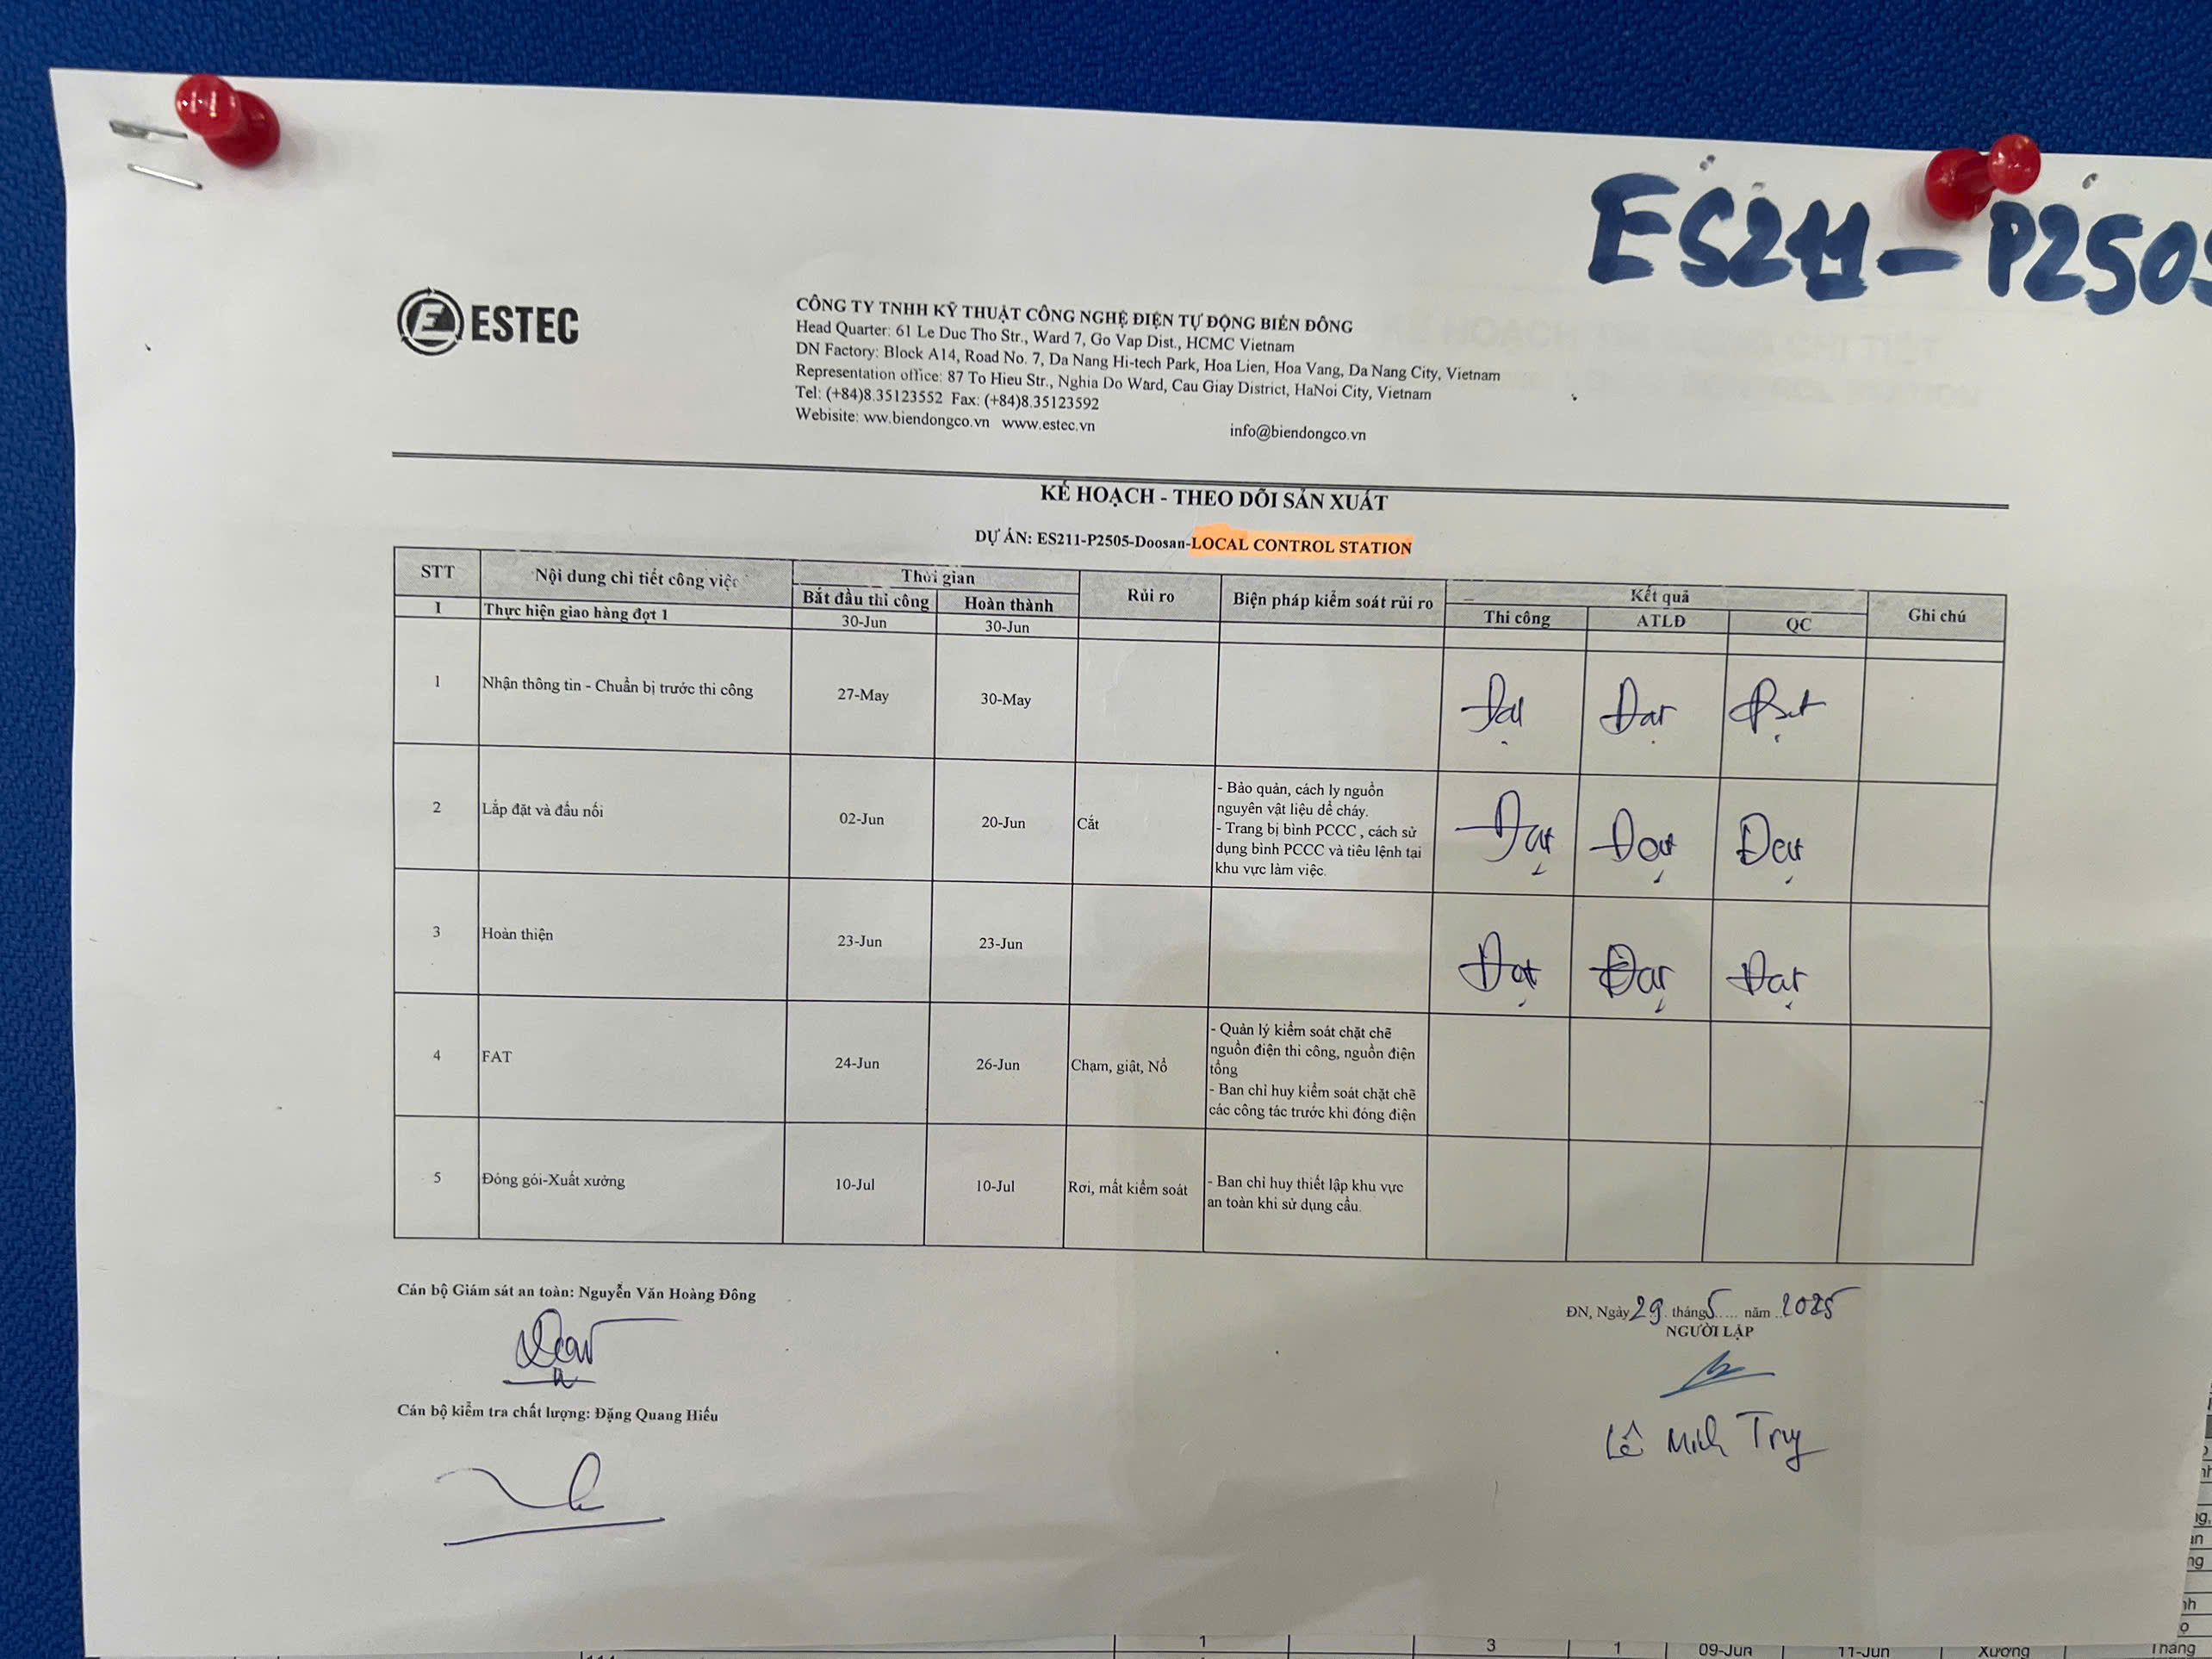 ES211-P2505
ESTEC
CÔNG TY TNHH KỸ THUẬT CÔNG NGHỆ ĐIỆN TỰ ĐỘNG BIỂN ĐÔNG
Head Quarter: 61 Le Duc Tho Str., Ward 7, Go Vap Dist., HCMC Vietnam
DN Factory: Block A14, Road No. 7, Da Nang Hi-tech Park, Hoa Lien, Hoa Vang, Da Nang City, Vietnam
Representation office: 87 To Hieu Str., Nghia Do Ward, Cau Giay District, HaNoi City, Vietnam
Tel: (+84)8.35123552 Fax: (+84)8.35123592
Webisite: ww.biendongco.vn www.estec.vn info@biendongco.vn
KẾ HOẠCH - THEO DÕI SẢN XUẤT
DỰ ÁN: ES211-P2505-Doosan-LOCAL CONTROL STATION
STT Nội dung chi tiết công việc Thời gian Rủi ro Biện pháp kiểm soát rủi ro Kết quả Ghi chú
Bắt đầu thi công Hoàn thành Thi công ATLĐ QC
I Thực hiện giao hàng đợt 1 30-Jun 30-Jun
1 Nhận thông tin - Chuẩn bị trước thi công 27-May 30-May Đạt Đạt Đạt
2 Lắp đặt và đấu nối 02-Jun 20-Jun Cắt
- Bảo quản, cách ly nguồn
nguyên vật liệu dễ cháy.
- Trang bị bình PCCC , cách sử
dụng bình PCCC và tiêu lệnh tại
khu vực làm việc.
Đạt Đạt Đạt
3 Hoàn thiện 23-Jun 23-Jun Đạt Đạt Đạt
4 FAT 24-Jun 26-Jun Chạm, giật, Nổ
- Quản lý kiểm soát chặt chẽ
nguồn điện thi công, nguồn điện
tổng
- Ban chỉ huy kiểm soát chặt chẽ
các công tác trước khi đóng điện
5 Đóng gói-Xuất xưởng 10-Jul 10-Jul Rơi, mất kiểm soát
- Ban chỉ huy thiết lập khu vực
an toàn khi sử dụng cẩu.
Cán bộ Giám sát an toàn: Nguyễn Văn Hoàng Đông
ĐN, Ngày 29 tháng 5 năm 2025
NGƯỜI LẬP
Cán bộ kiểm tra chất lượng: Đặng Quang Hiếu
Lê Minh Truy
1 3 1 09-Jun 11-Jun Xưởng Tháng